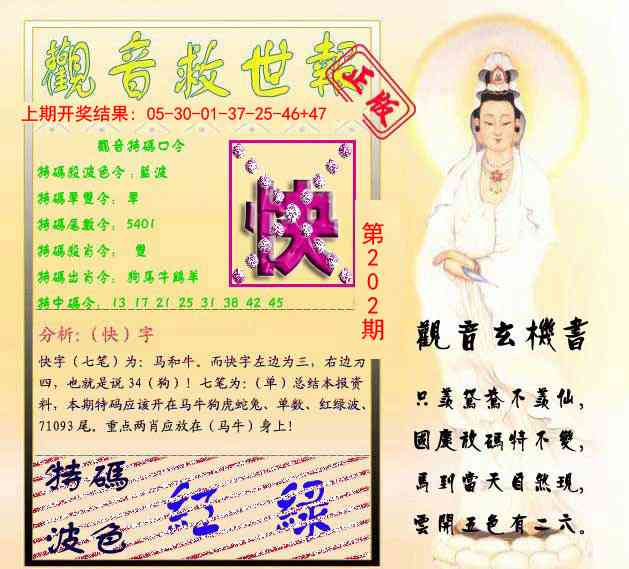 觀音救世報
正版
上期开奖结果：05-30-01-37-25-46+47
觀音特碼口令
特碼殺波色令：藍波
特碼單雙令： 單
特碼尾數令： 5401
特碼殺肖令： 雙
特碼出肖令： 狗馬牛鷄羊
特中碼令： 13 17 21 25 31 38 42 45
快
第202期
分析:（快）字
快字（七笔）为：马和牛。而快字左边为三，右边为
四，也就是说 34（狗）！七笔为：（单）总结本报资
料，本期特码应该开在马牛狗虎蛇兔、单数、红绿波、
71093 尾。重点两肖应放在（马牛）身上！
特碼
波色
紅 綠
觀音玄機書
只羨鴛鴦不羨仙,
國慶放碼特不變,
馬到當天自然現,
雲開五色有二六。